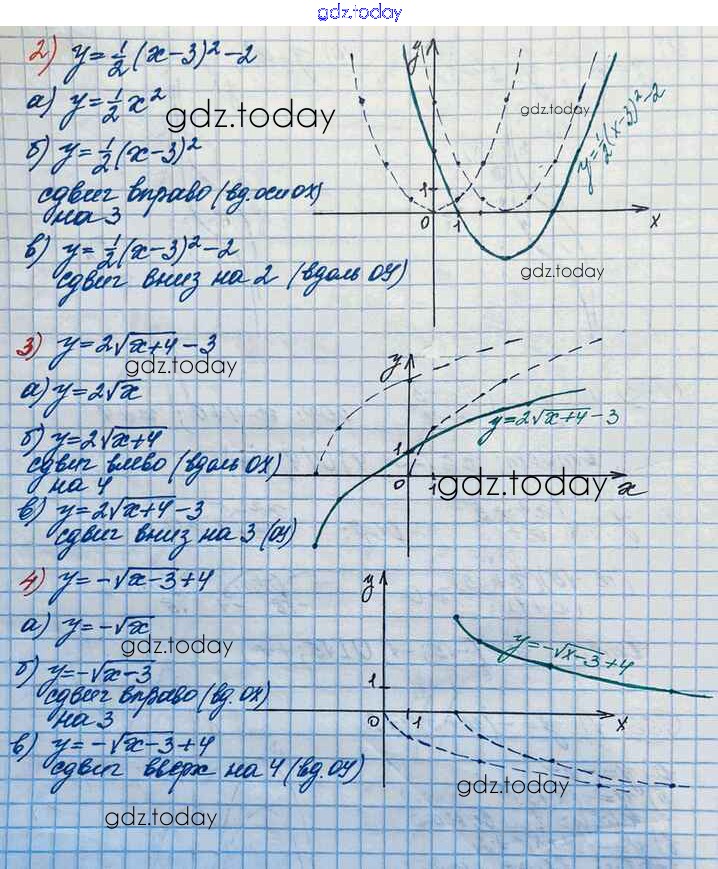 gdz.today
2) y=½(x-3)²-2
а) y=½x²
gdz.today
б) y=½(x-3)²
сдвиг вправо (вд.оси OX)
на 3
в) y=½(x-3)²-2
сдвиг вниз на 2 (вдоль OY)
y
gdz.today
y=½(x-3)²-2
1
0
1
x
gdz.today
3) y=2√x+4-3
gdz.today
а) y=2√x
б) y=2√x+4
сдвиг влево (вдоль OX)
на 4
в) y=2√x+4-3
сдвиг вниз на 3 (OY)
y
y=2√x+4-3
1
0
1
gdz.today
x
4) y=-√x-3+4
а) y=-√x
gdz.today
б) y=-√x-3
сдвиг вправо (вд.OX)
на 3
в) y=-√x-3+4
сдвиг вверх на 4 (вд.OY)
gdz.today
y
y=-√x-3+4
1
0
1
x
gdz.today